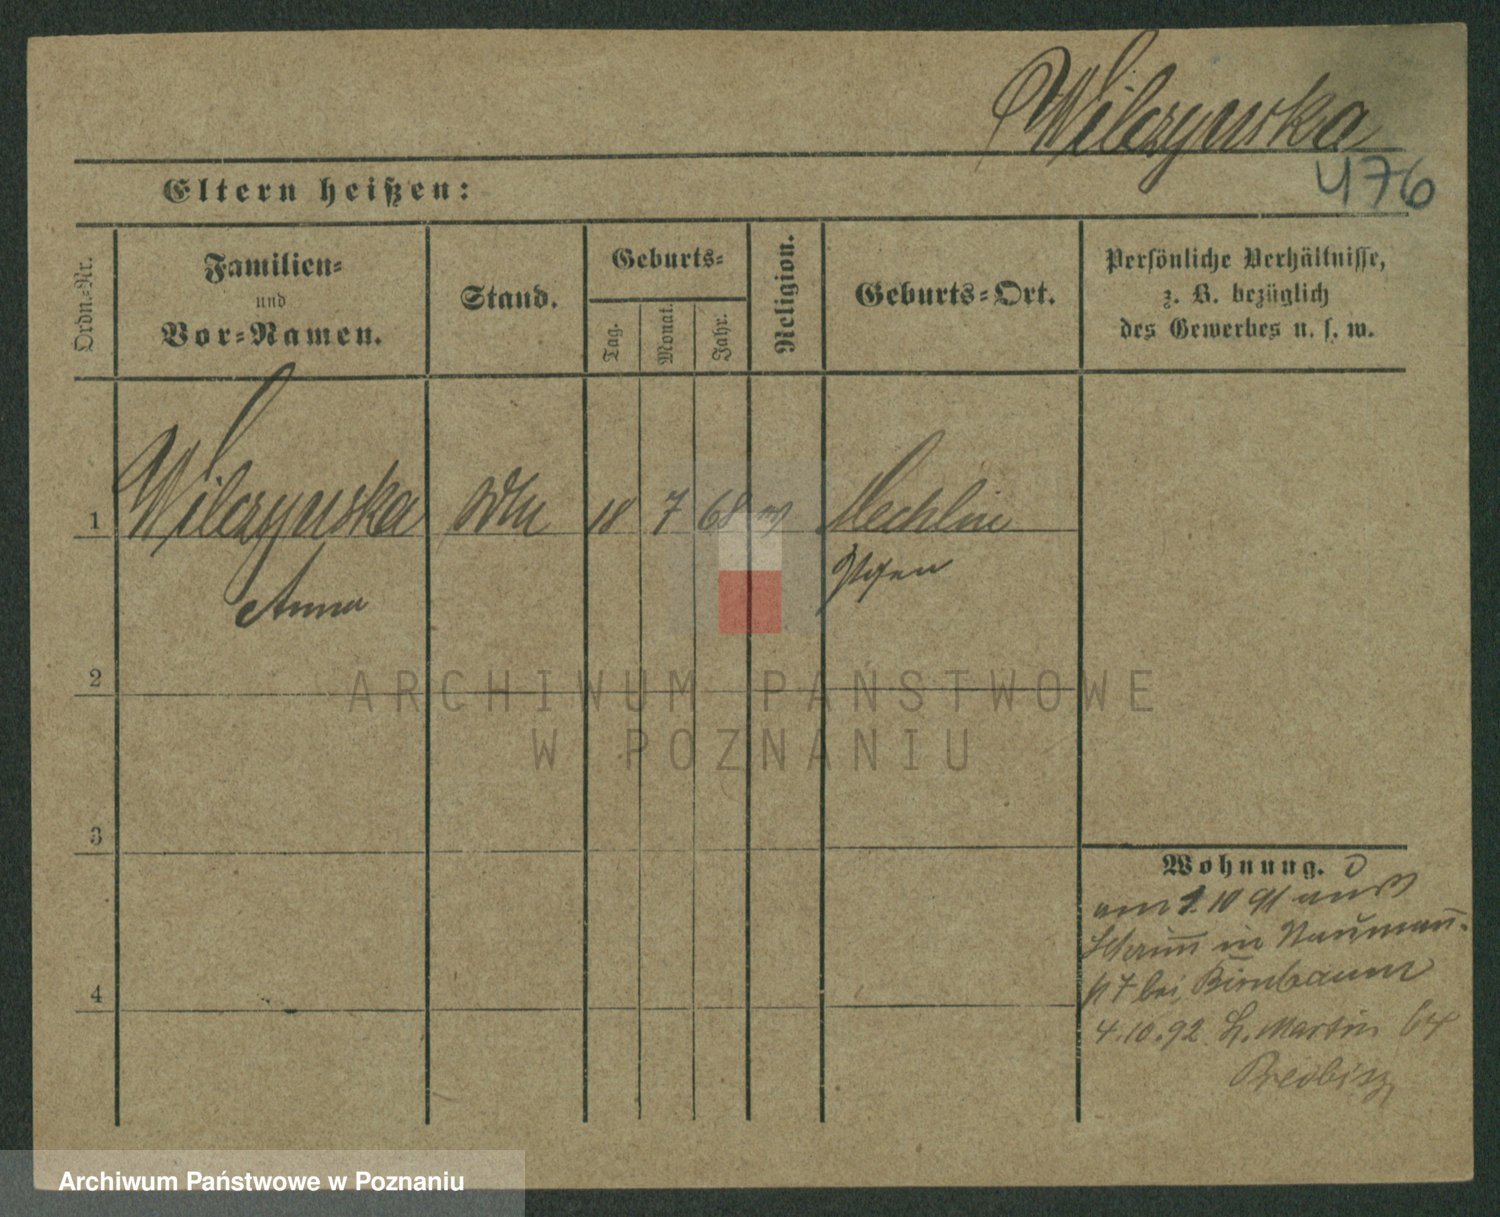 Wilczynska
476
Eltern heißen:
Ordn.-Nr.
Familien-
und
Vor-Namen.
Stand.
Geburts-
Tag.
Monat.
Jahr.
Religion.
Geburts-Ort.
Persönliche Verhältnisse,
z. B. bezüglich
des Gewerbes u. s. w.
1
Wilczynska
18
7
68
Mechlin
Anna
2
3
4
Wohnung.
am 1.10 91 aus
Schrimm in Naumann-
7 bei Birnbaum
4.10.92 St. Martin 64
ARCHIWUM PAŃSTWOWE
W POZNANIU
Archiwum Państwowe w Poznaniu